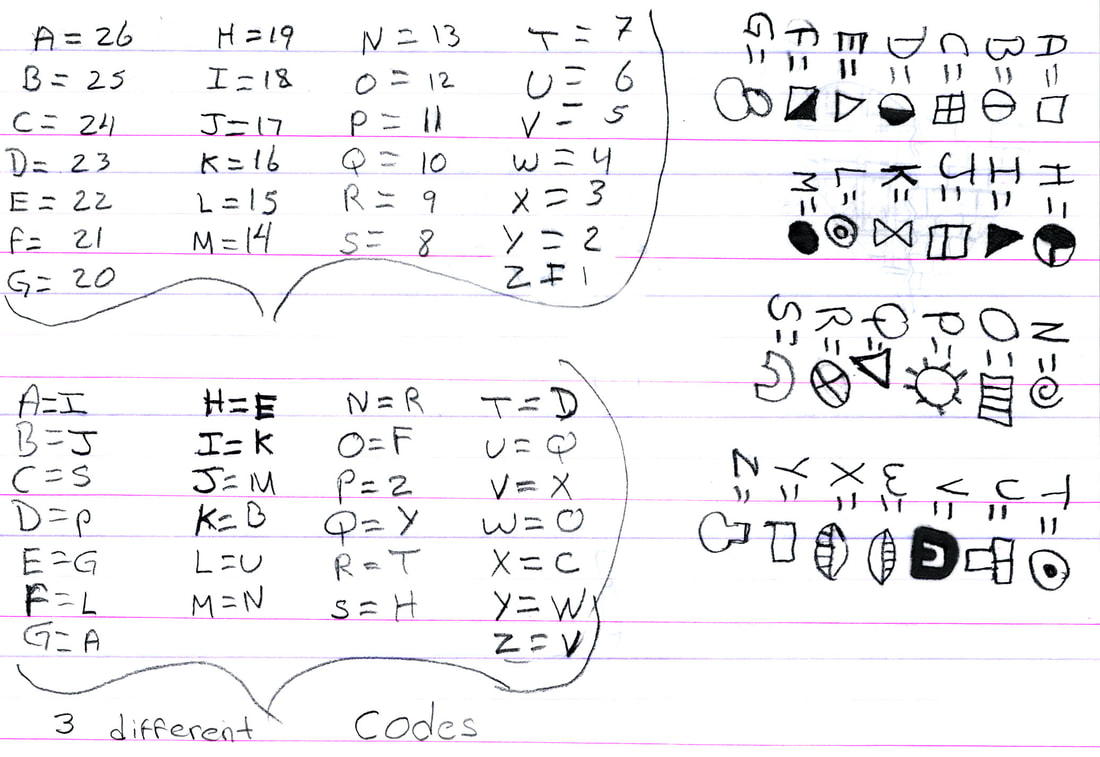 A = 26 H = 19 N = 13 T = 7
B = 25 I = 18 O = 12 U = 6
C = 24 J = 17 P = 11 V = 5
D = 23 K = 16 Q = 10 W = 4
E = 22 L = 15 R = 9 X = 3
F = 21 M = 14 S = 8 Y = 2
G = 20 Z = 1
A=I H=E N=R T=D
B=J I=K O=F U=Q
C=S J=M P=Z V=X
D=P K=B Q=Y W=O
E=G L=U R=T X=C
F=L M=N S=H Y=W
G=A Z=V
3 different Codes
A =
B =
C =
D =
E =
F =
G =
H =
I =
J =
K =
L =
M =
N =
O =
P =
Q =
R =
S =
T =
U =
V =
W =
X =
Y =
Z =